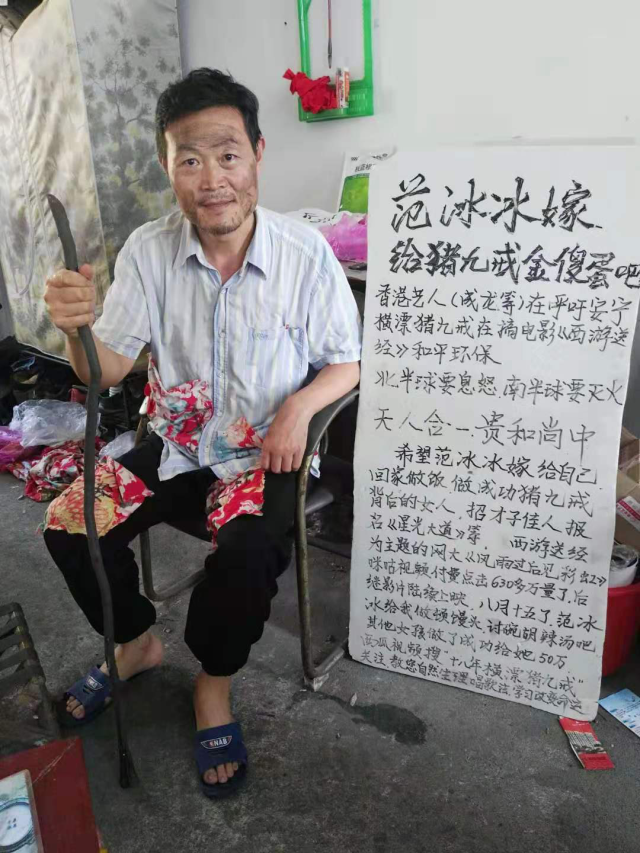 范冰冰嫁
给猪九戒金傻蛋吧
香港艺人(成龙等)在呼吁安宁
横漂猪九戒在搞电影《西游送
经》和平环保
北半球要息怒.南半球要灭火
天人合一.贵和尚中
希望范冰冰嫁给自己
回家做饭.做成功猪九戒
背后的女人.招才子佳人报
名《星光大道》等 西游送经
为主题的网大《风雨过后见彩虹2》
咪咕视频付费点击630多万量了,后
继影片陆续上映.八月十五了.范冰
冰给我做顿馒头.讨碗胡辣汤吧
其他女孩做了成功给她50万
视频搜"十八年横漂猪九戒"
关注教您自然生理唱歌法.学习
NAB